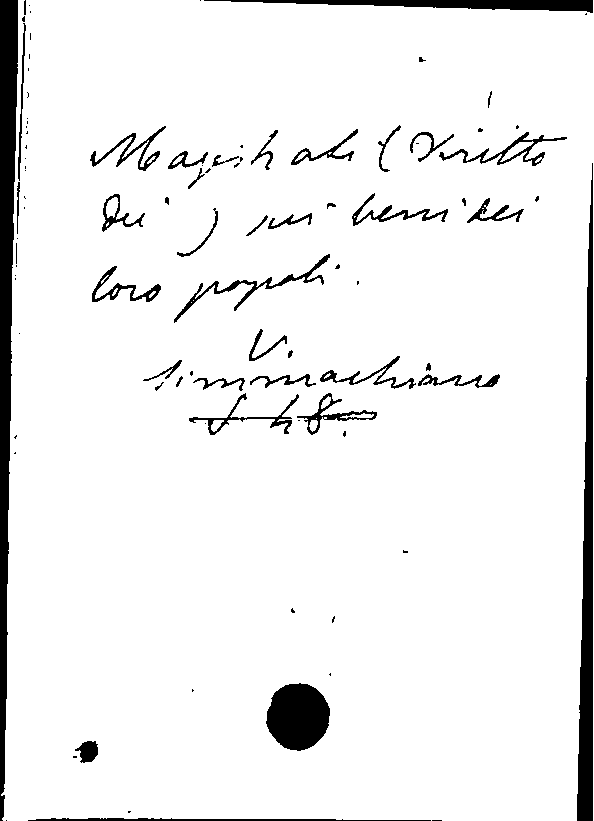 Magistrati (Diritto
dei) sui beni dei
loro popoli.
V.
Simmachiano